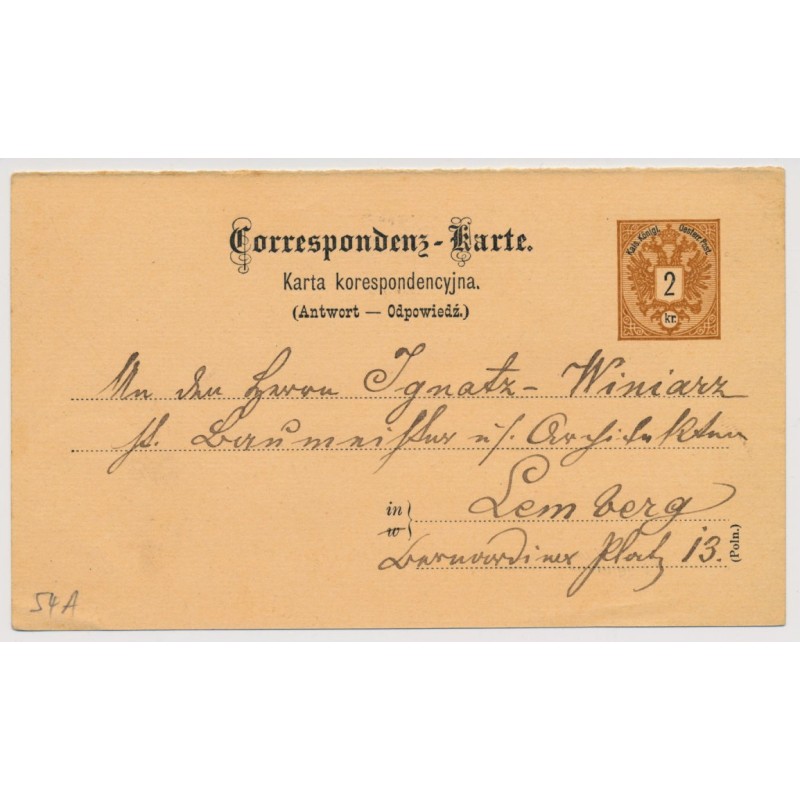 Correspondenz-Karte.
Karta korespondencyjna.
(Antwort — Odpowiedź.)
Kais. Königl. Oesterr. Post.
2
kr.
An den Herrn Ignatz Winiarz
st. Baumeister u/. Architekten
in
w
Lemberg
Bernardiner Platz 13.
(Poln.)
54A